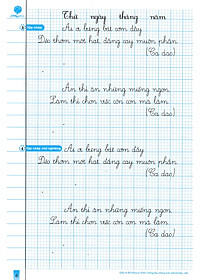 Thứ ngày tháng năm
Ai ơi bưng bát cơm đầy
Dẻo thơm một hạt, đắng cay muôn phần
(Ca dao)
Ăn thì ăn những miếng ngon
Làm thì chọn việc cỏn con mà làm
(Ca dao)
Ai ơi bưng bát cơm đầy
Dẻo thơm một hạt, đắng cay muôn phần
(Ca dao)
Ăn thì ăn những miếng ngon
Làm thì chọn việc cỏn con mà làm
(Ca dao)